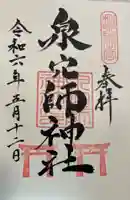 春拝
泉穴師神社
令和六年五月十二日